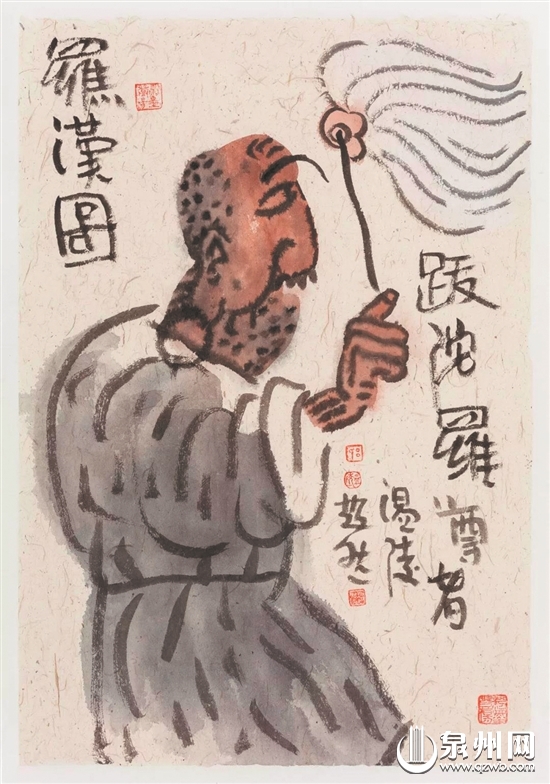 羅漢圖
跋陀羅尊者
温陵
泉州网
www.qzwb.com